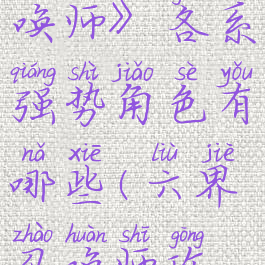 唤师》 各系
qiáng shì jiǎo sè yǒu
强势角色有
nǎ xiē liù jiè
哪些(六界
zhào huàn shī gōng
召唤师攻